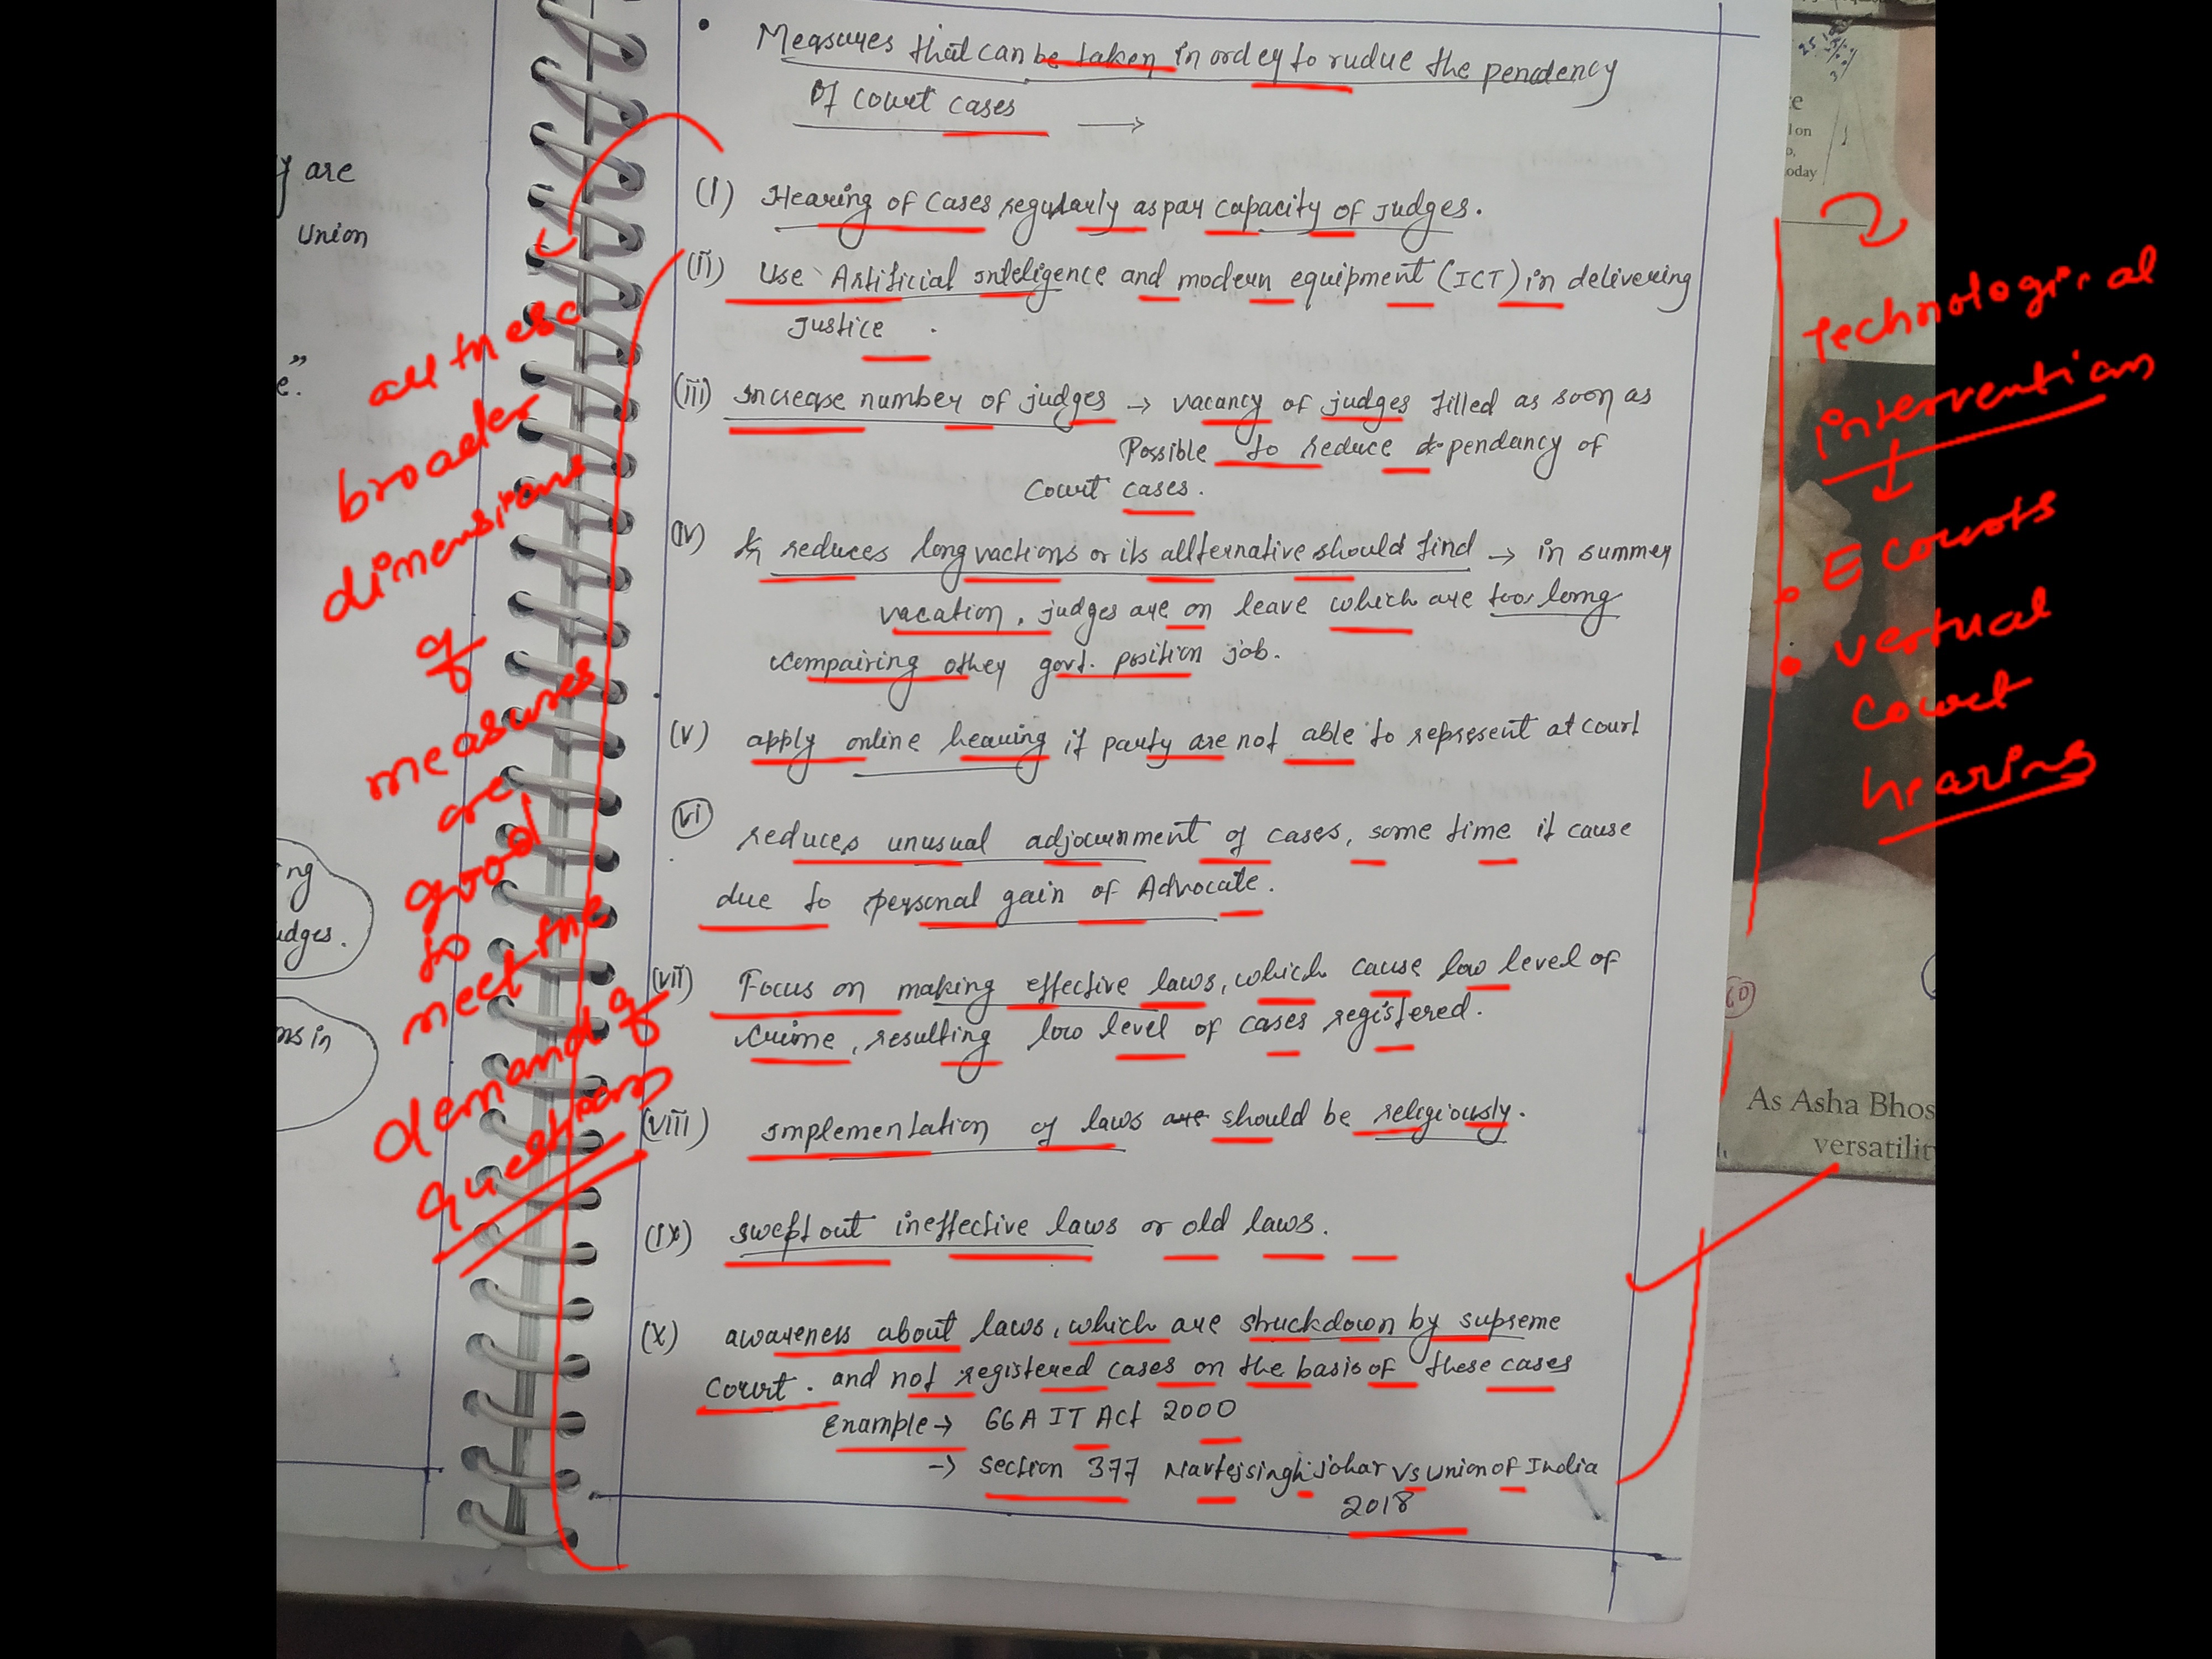 • Measures that can be taken in ordey to rudue the penddency
of court cases →
(i) Hearing of cases regularly as par capacity of judges.
(ii) Use Artificial inteligence and modern equipment (ICT) in delivering
justice.
(iii) increase number of judges → vacancy of judges filled as soon as
Possible to reduce pendancy of
Court cases.
(iv) reduces long vactions or its allternative should find → in summer
vacation, judges are on leave which are too long
compairing othey govt. position job.
(v) apply online hearing if party are not able to represent at court
(vi) reduces unusual adjournment of cases, some time it cause
due to personal gain of Advocate.
(vii) Focus on making effective laws, which cause low level of
crime, resulting low level of cases registered.
(viii) implementation of laws are should be religiously.
(ix) swept out ineffective laws or old laws.
(x) awareness about laws, which are struckdown by supreme
Court. and not registered cases on the basis of these cases
Example → 66A IT Act 2000
→ section 377 Navtejsingh johar vs union of India
2018
all these
broader
dimensions
of
measures
are
good
to
meet the
demand of
questions
Technological
interventions
↓
• E courts
• vertual
court
hearing
y are
Union
e."
ng
udges.
ns in
As Asha Bhos
versatilit
e
l on
o,
oday